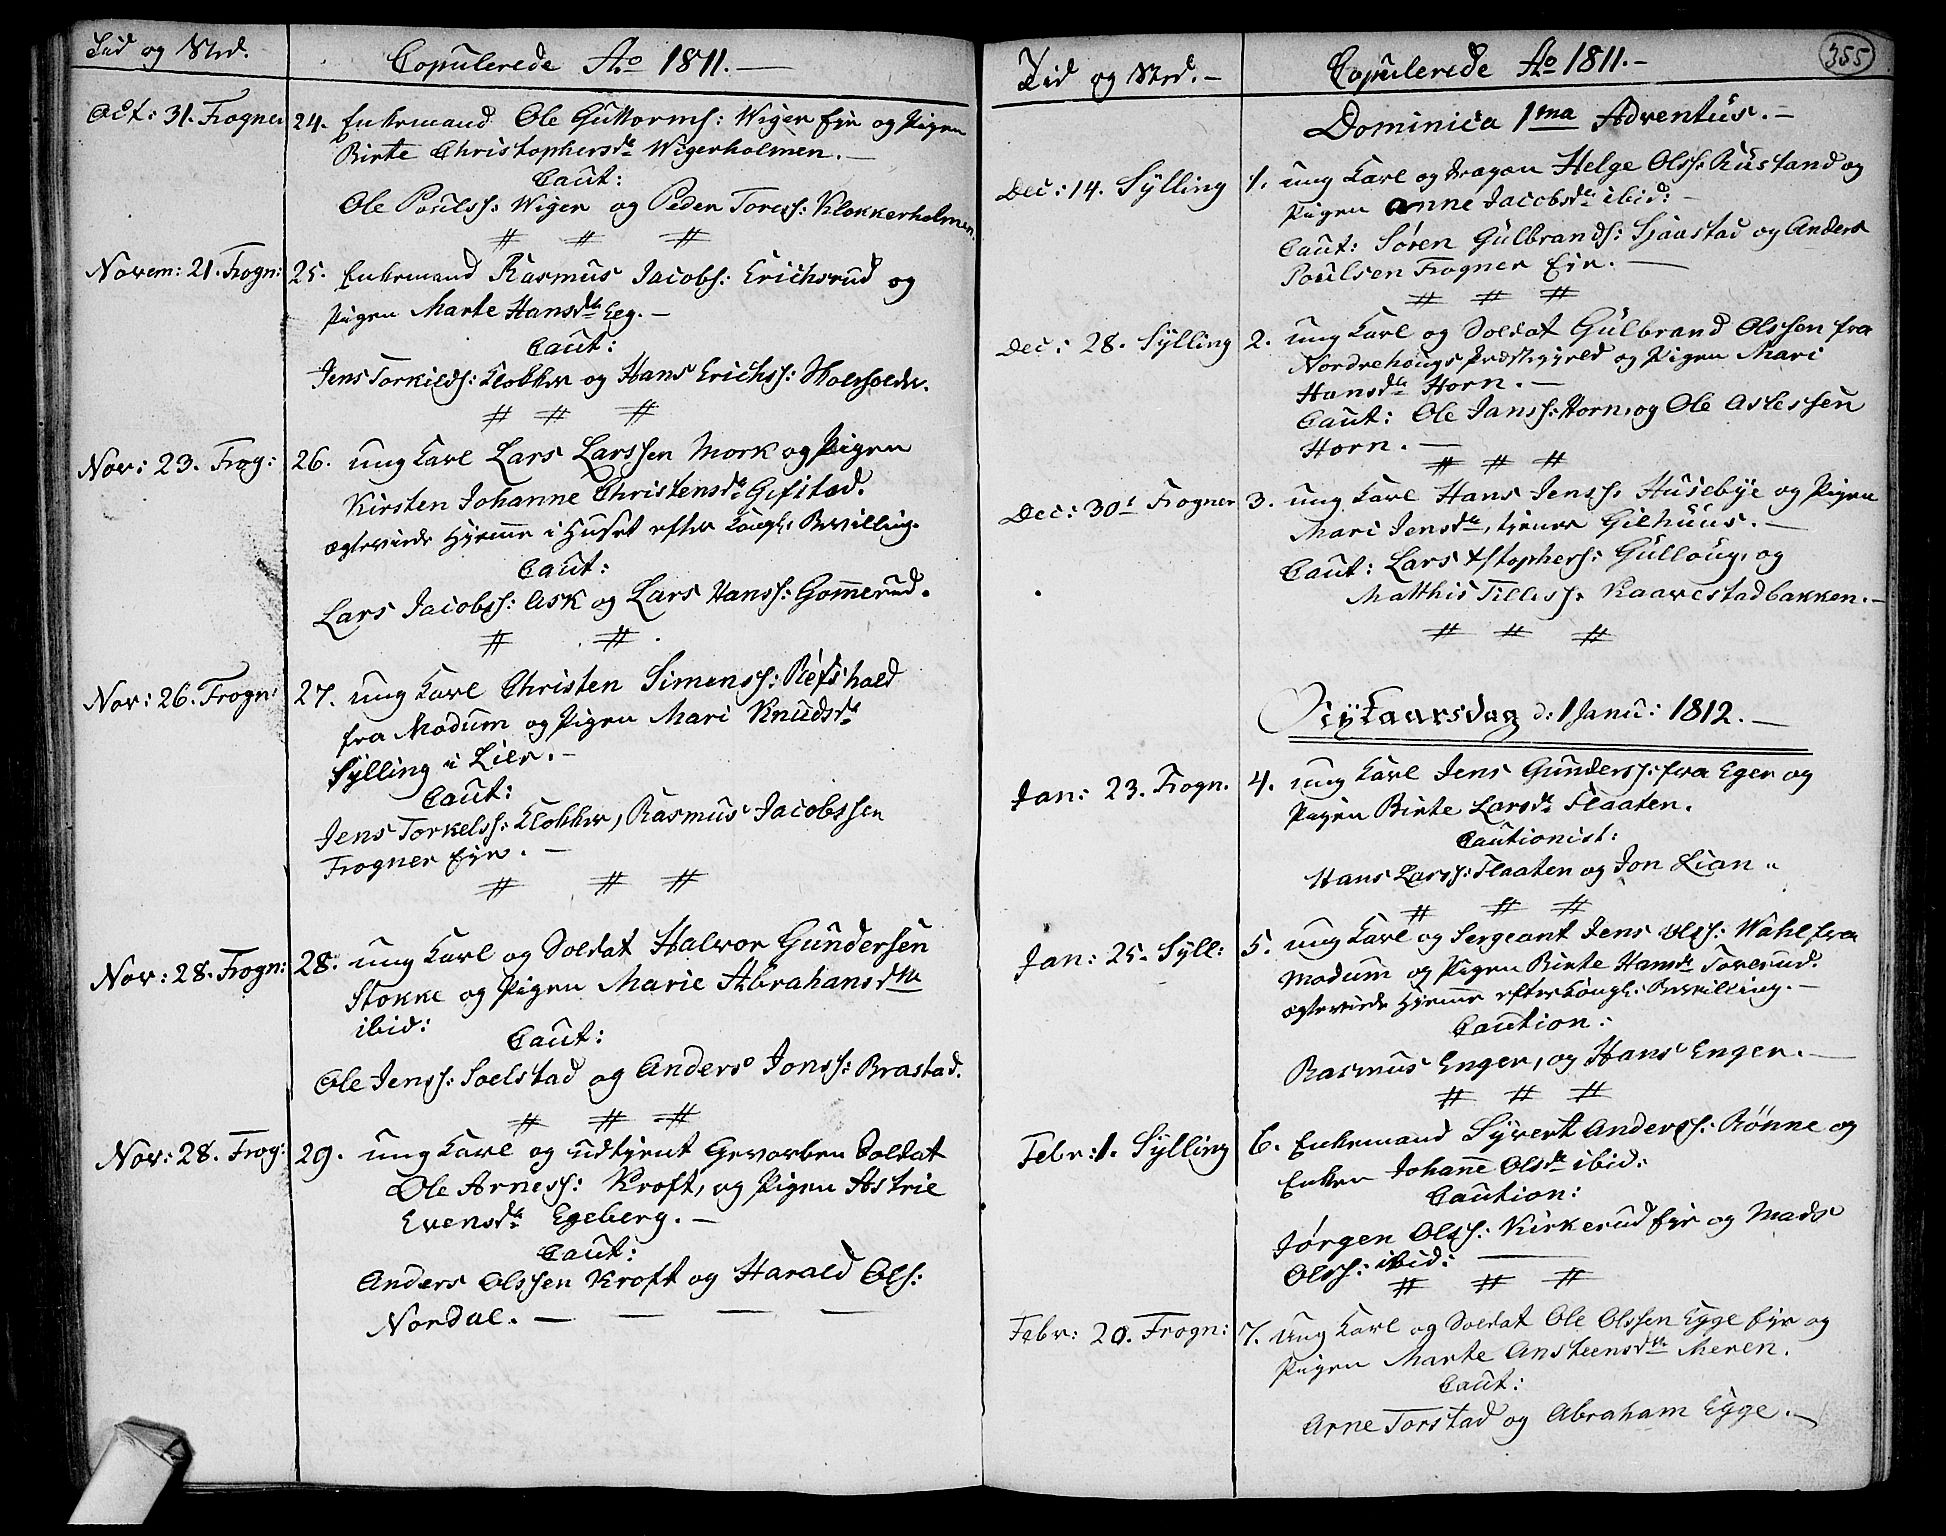 Tid og Sted.
Copulerede Ao 1811. —
Oct: 31. Frogner
24. Enkemand Ole Guttorms: Wiger Eje og Pigen
Birte Christophersd: Wigerholmen. —
Caut:
Ole Pouls: Wiger og Peder Toress: Klokkerholmen.
# # #
Novem: 21. Frogn:
25. Enkemand Rasmus Jacobs: Erichsrud og
Pigen Marte Hansd: Eeg. —
Caut:
Jens Torkilds: Klokker og Hans Erichss:
# # #
Nov: 23. Frog:
26. ung Karl Lars Larssen Mork og Pigen
Kirsten Johanne Christensd: Gifstad.
ægteviede Hjemme i Huset efter Kongl: Bevilling.
Caut:
Lars Jacobss: Ask og Lars Hanss: Gomerud.
# #
Nov: 26. Frogn:
27. ung Karl Christen Simenss: Refshald
fra Modum og Pigen Mari Knudsd:
Sylling i Lier. —
Caut:
Jens Torkelss: Klokker, Rasmus Jacobssen
Frogner Eje. —
# # #
Nov: 28. Frogn:
28. ung Karl og Soldat Halvor Gundersen
Stokke og Pigen Marie Abrahamsdtr
ibid:
Caut:
Ole Jenss: Soelstad og Anders Jonss: Brastad.
# # #
Nov: 28. Frog:
29. ung Karl og udtjent Gevorben Soldat
Ole Arness: Kroft, og Pigen Astrie
Evensd: Egeberg. —
Caut:
Anders Olssen Kroft og Harald Ols:
Nordal. — — — —
355
Tid og Sted. —
Copulerede Ao 1811. —
Dominica 1ma Adventus. —
Dec: 14. Sylling
1. ung Karl og Dragon Helge Olss: Rustand og
Pigen Anne Jacobsd: ibid: —
Caut: Søren Gulbrands: Sjaastad og Anders
Poulsen Frogner Eje. —
# # #
Dec: 28. Sylling
2. ung Karl og Soldat Gulbrand Olssen fra
Nordrehougs Præstegjeld og Pigen Mari
Hansd: Horn. —
Caut: Ole Janss: Horn, og Ole Aslessen
Horn. —
# # #
Dec: 30: Frogner
3. ung Karl Hans Jenss: Husebye og Pigen
Mari Jensd:, tjener Gilhuus. —
Caut: Lars Xstophers: Gulloug, og
Matthis Tilless: Kaarestadbakken. —
# # #
Nytaarsdag d: 1 Janu: 1812. —
Jan: 23. Frogn.
4. ung Karl Jens Gunderss: fra Eger og
Pigen Birte Larsd: Flaaten.
Cautionist:
Hans Larss: Flaaten og Jon Lian "
# # #
Jan: 25. Syll:
5. ung Karl og Sergeant Jens Olss: Wahl fra
Modum og Pigen Birte Hansd: Toverud.
ægteviede Hjemme efter Kongl: Bevilling. —
Caution:
Rasmus Enger, og Hans Enger. —
# # #
Febr: 1. Sylling
6. Enkemand Syvert Anderss: Rønne og
Enken Johanne Olsd: ibid:
Caution:
Jørgen Olss: Kirkerud Eje og Mads
Olss: ibid: —
# # #
Febr: 20. Frogn:
7. ung Karl og Soldat Ole Olssen Egge Eje og
Pigen Marte Ansteensd: Meren.
Caut:
Arne Torstad og Abraham Egge. —